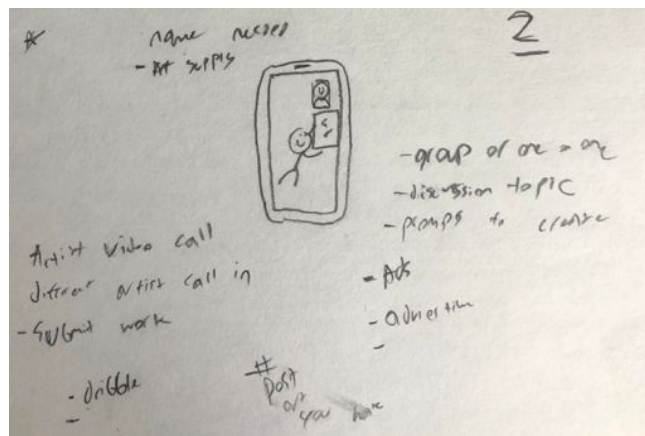 2
name needed
- Art supply
- group or one on one
- discussion topic
- prompts to create
- Ads
- advertise
-
Artist video call
different artist call in
- Submit work
- dribble
-
#
Post
art
you have